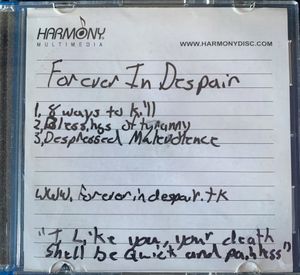 HARMONY
MULTIMEDIA
WWW.HARMONYDISC.COM
Forever In Despair
1. 8 ways to kill
2. Blessings of tyranny
3. Despressed Malevolence
www.foreverindespair.tk
"I Like you, your death
shall be Quick and painless"